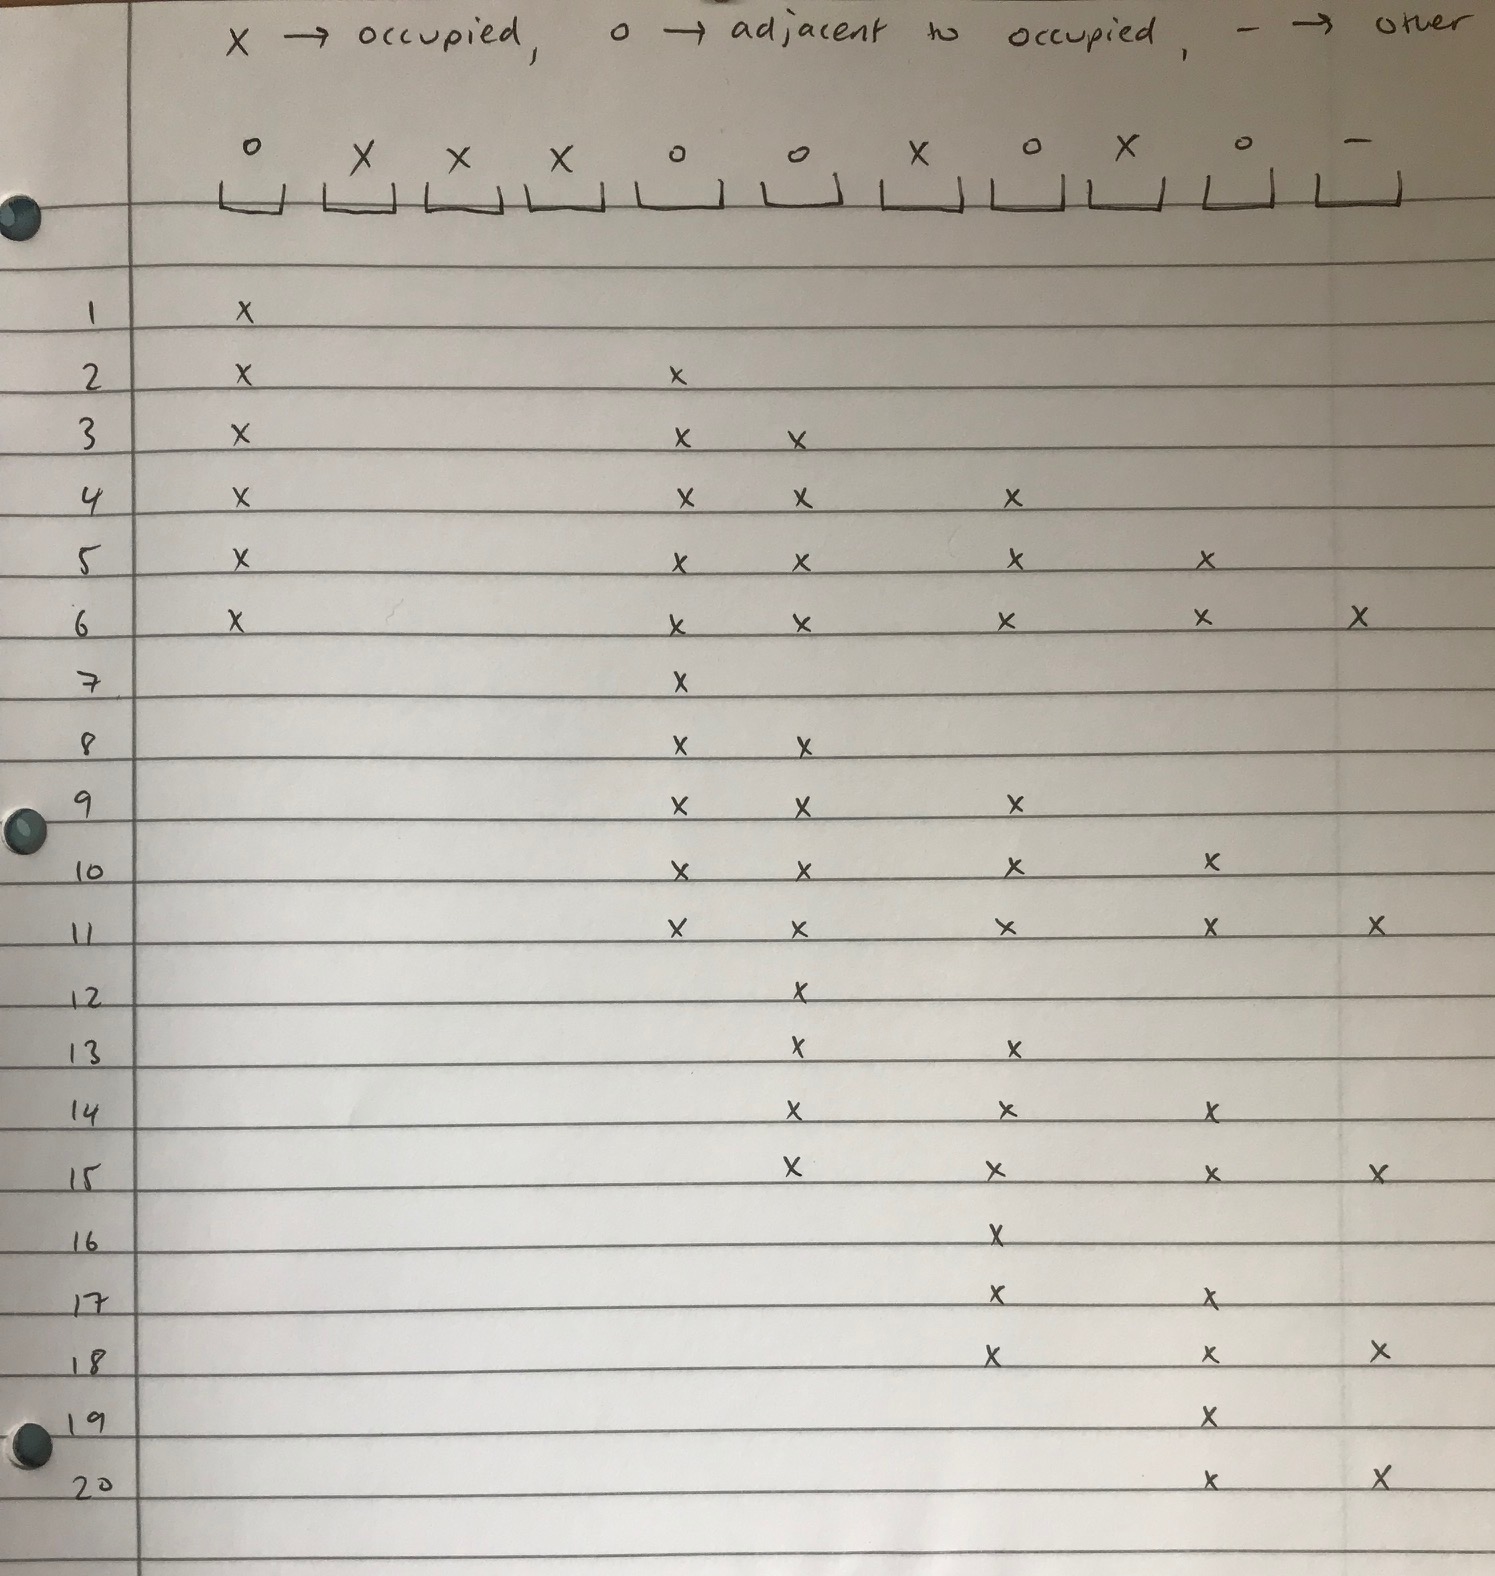 x → occupied, o → adjacent to occupied, - → other
o x x x o o x o x o -
1 x
2 x x
3 x x x
4 x x x x
5 x x x x x
6 x x x x x x
7 x
8 x x
9 x x x
10 x x x x
11 x x x x x
12 x
13 x x
14 x x x
15 x x x x
16 x
17 x x
18 x x x
19 x
20 x x